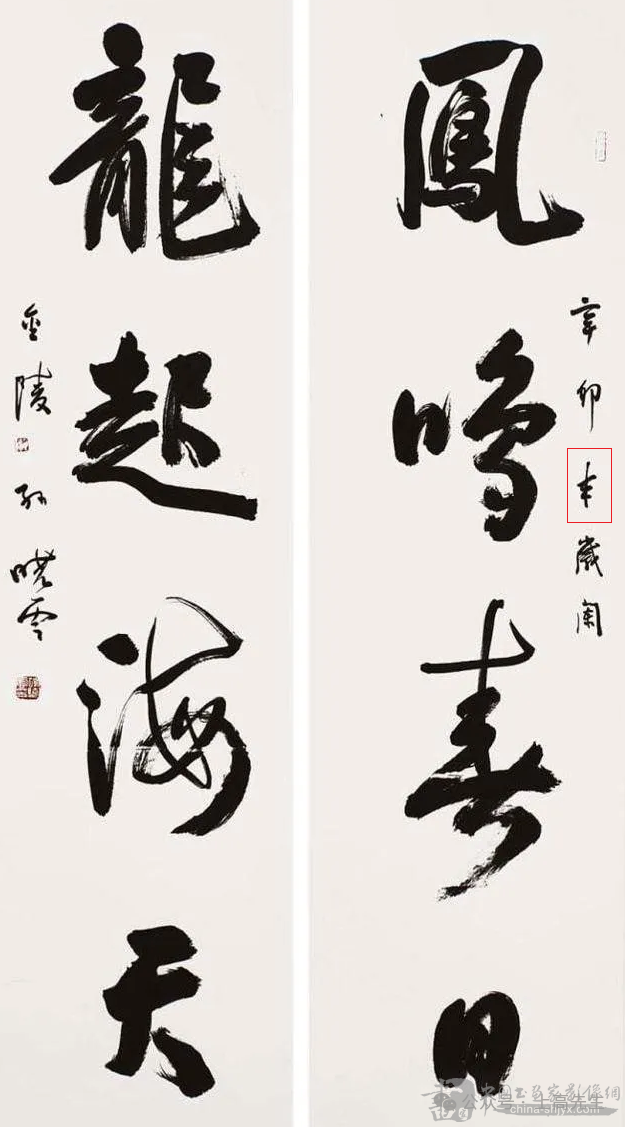 鳳鳴春日
辛卯年歲闌
龍起海天
金陵孫曉雲
china-shjyx.com